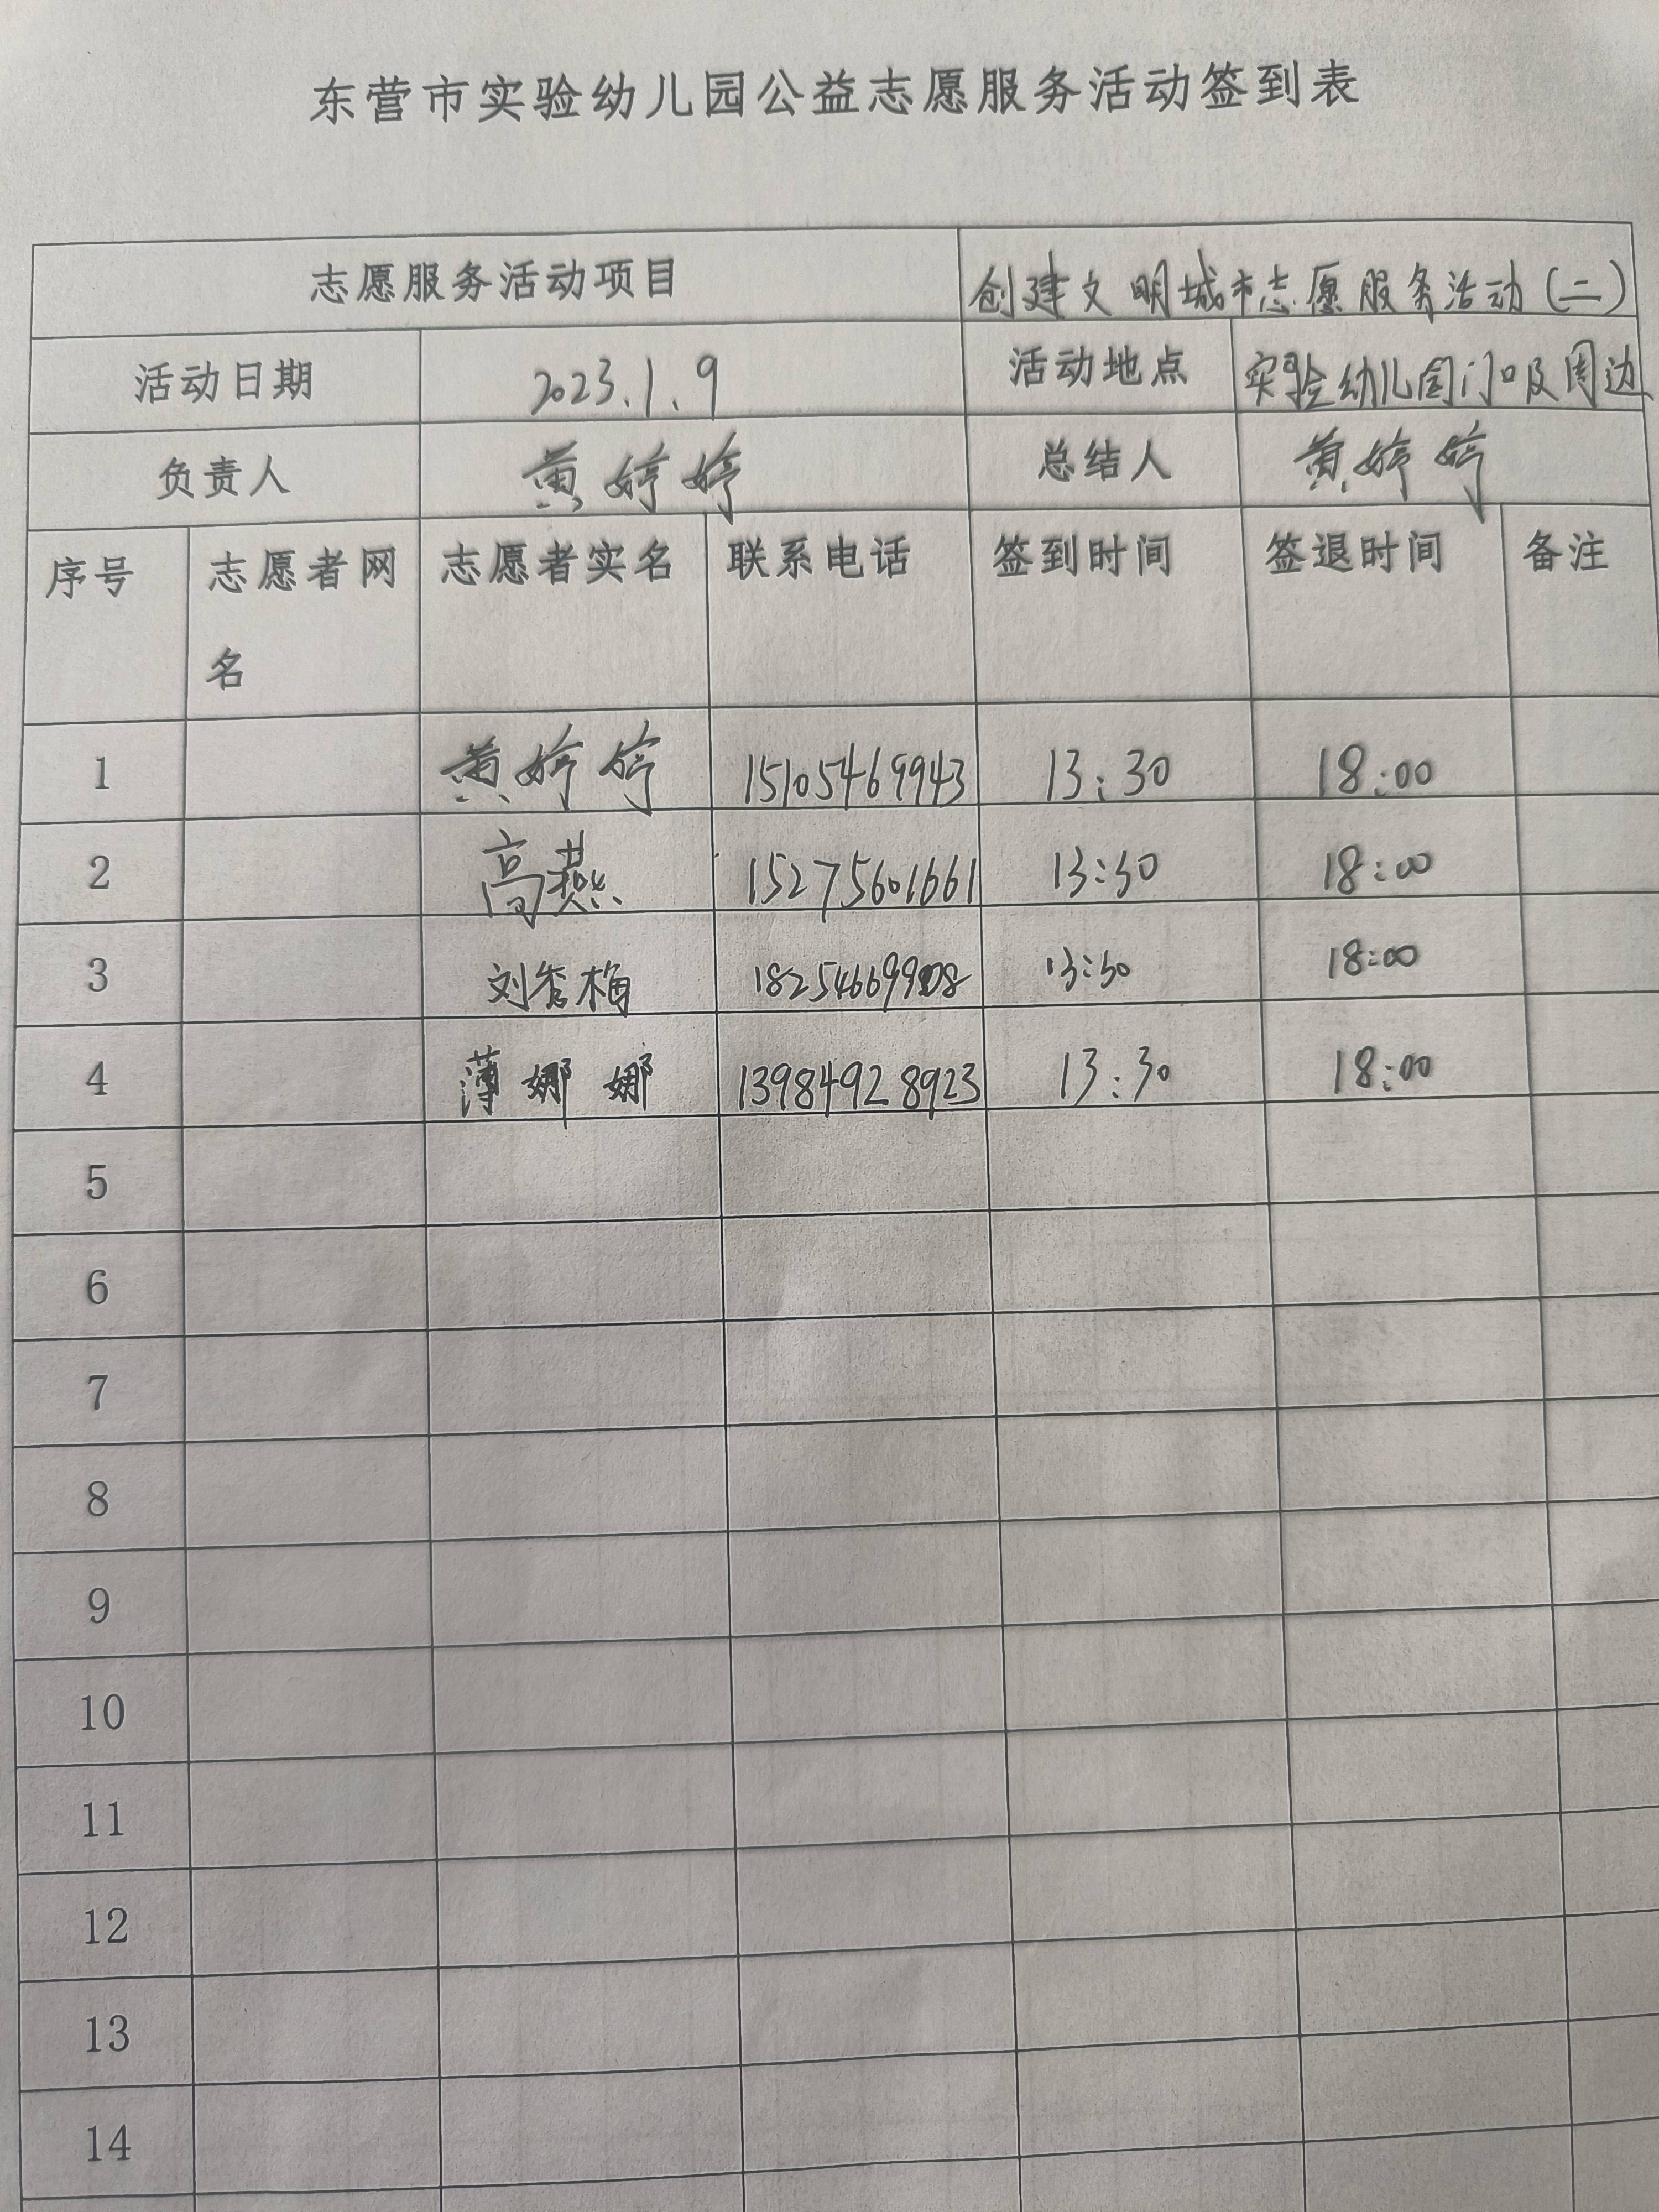 东营市实验幼儿园公益志愿服务活动签到表
志愿服务活动项目 创建文明城市志愿服务活动(二)
活动日期 2023.1.9 活动地点 实验幼儿园门口及周边
负责人 黄婷婷 总结人 黄婷婷
序号 志愿者网名 志愿者实名 联系电话 签到时间 签退时间 备注
1 黄婷婷 15105469943 13:30 18:00
2 高燕 15275601661 13:30 18:00
3 刘秀梅 13:30 18:00
4 薄娜娜 13984928923 13:30 18:00
5
6
7
8
9
10
11
12
13
14